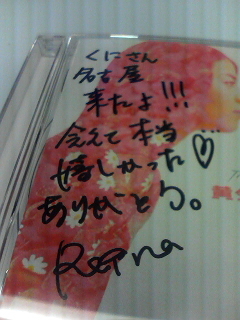 くにさん
名古屋
来たよ!!!
会えて本当
嬉しかった♡
ありがとう。
Reina